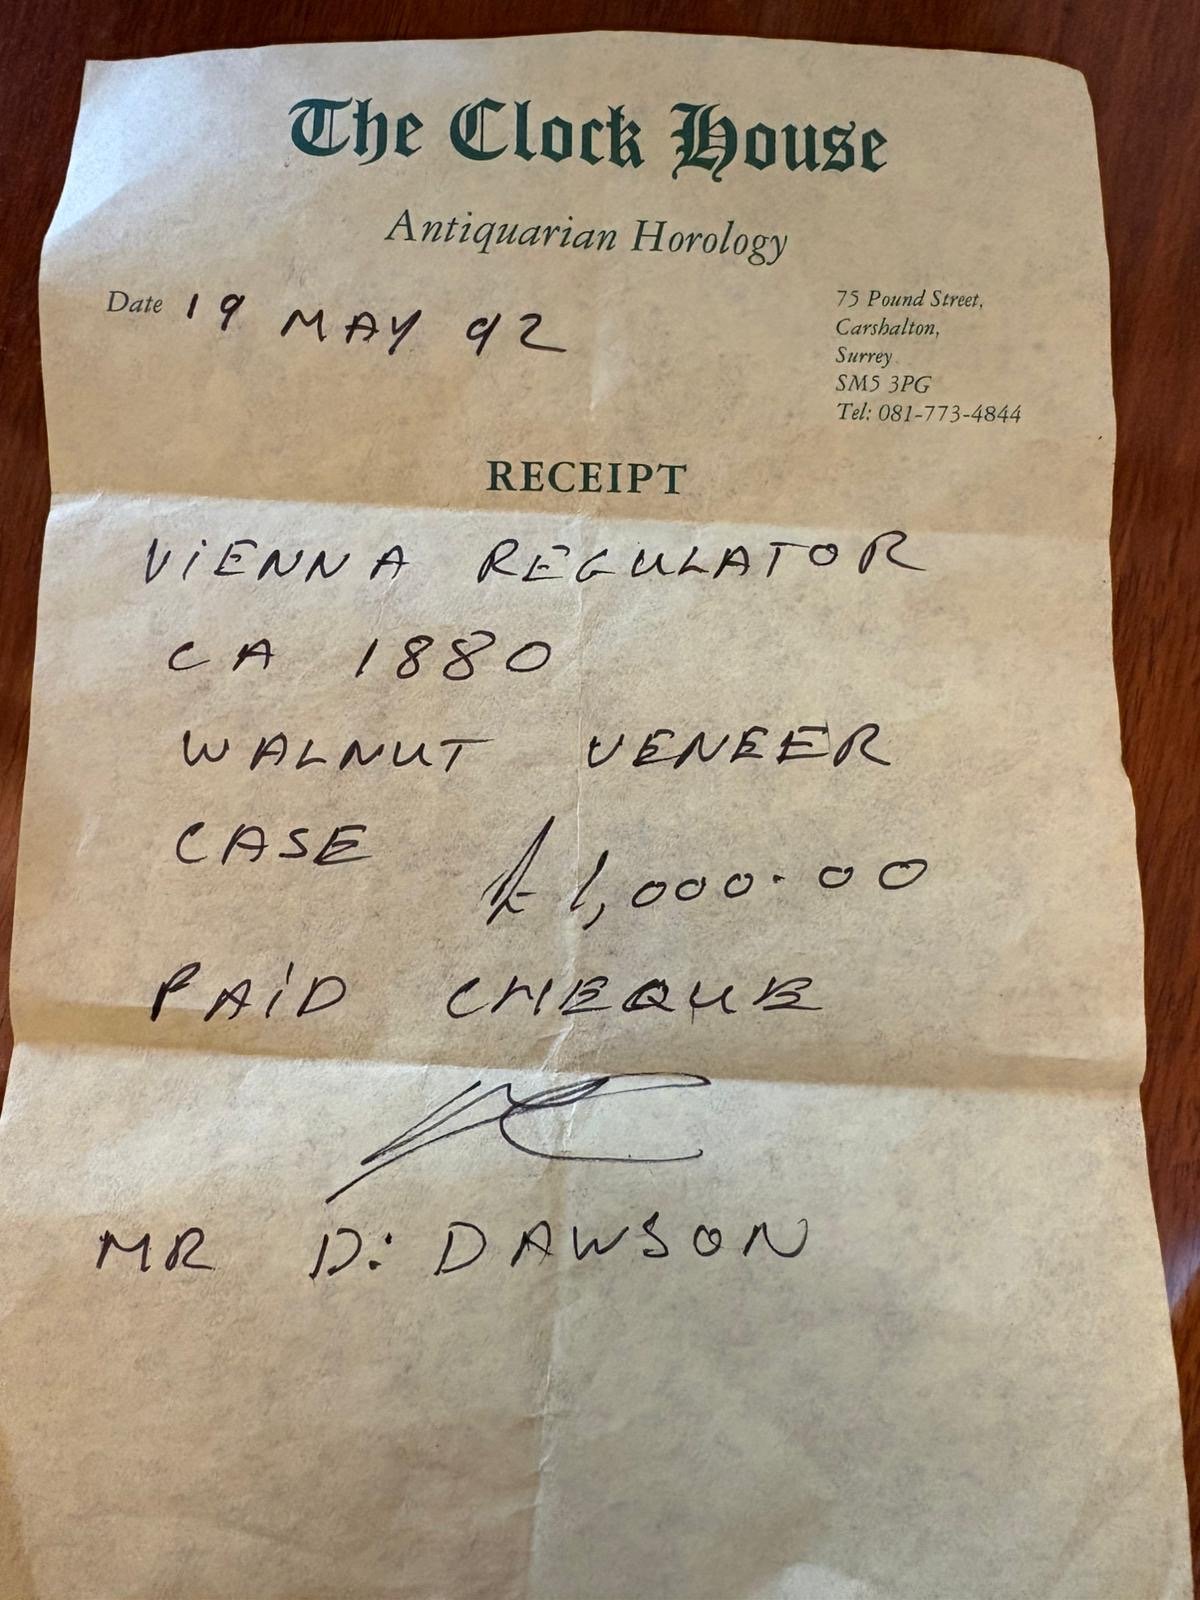 The Clock House
Antiquarian Horology
Date 19 MAY 92
75 Pound Street,
Carshalton,
Surrey
SM5 3PG
Tel: 081-773-4844
RECEIPT
VIENNA REGULATOR
CA 1880
WALNUT VENEER
CASE £1,000.00
PAID CHEQUE
MR D: DAWSON